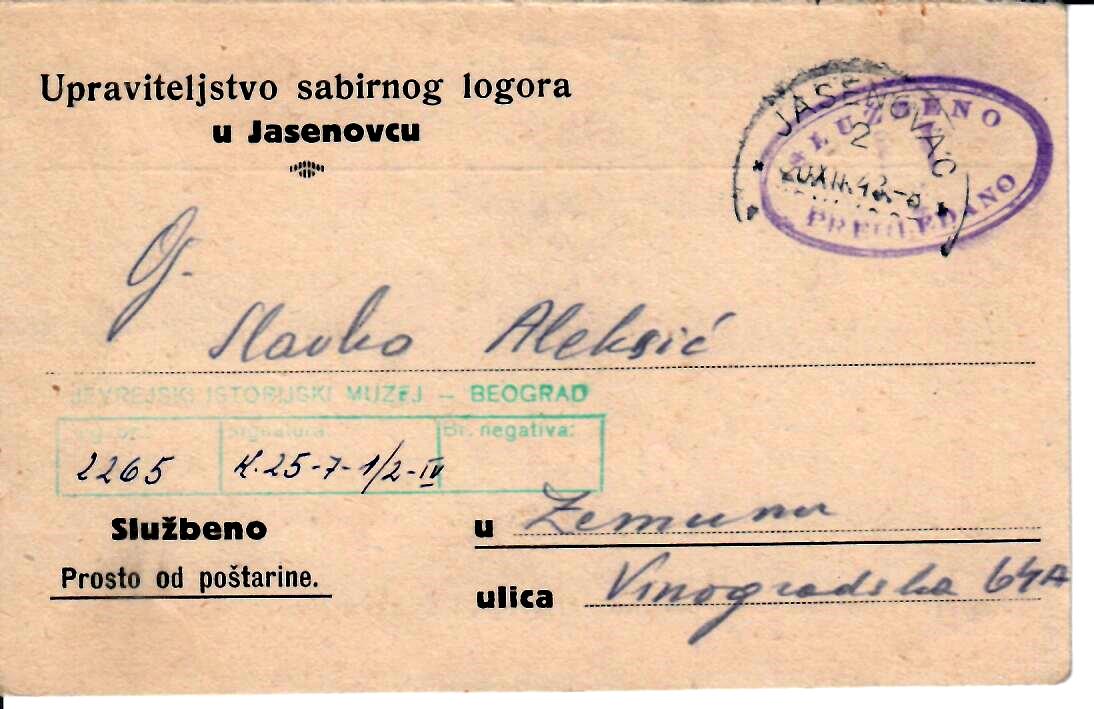 Upraviteljstvo sabirnog logora
u Jasenovcu
JASENOVAC
2
20 XII. 42.-8
SLUŽBENO
PREGLEDANO
G.
Slavko Aleksić
JEVREJSKI ISTORIJSKI MUZEJ – BEOGRAD
Signatura: Br. negativa:
2265 K.25-7-1/2-IV
Službeno
Prosto od poštarine.
u Zemunu
ulica Vinogradska 64A